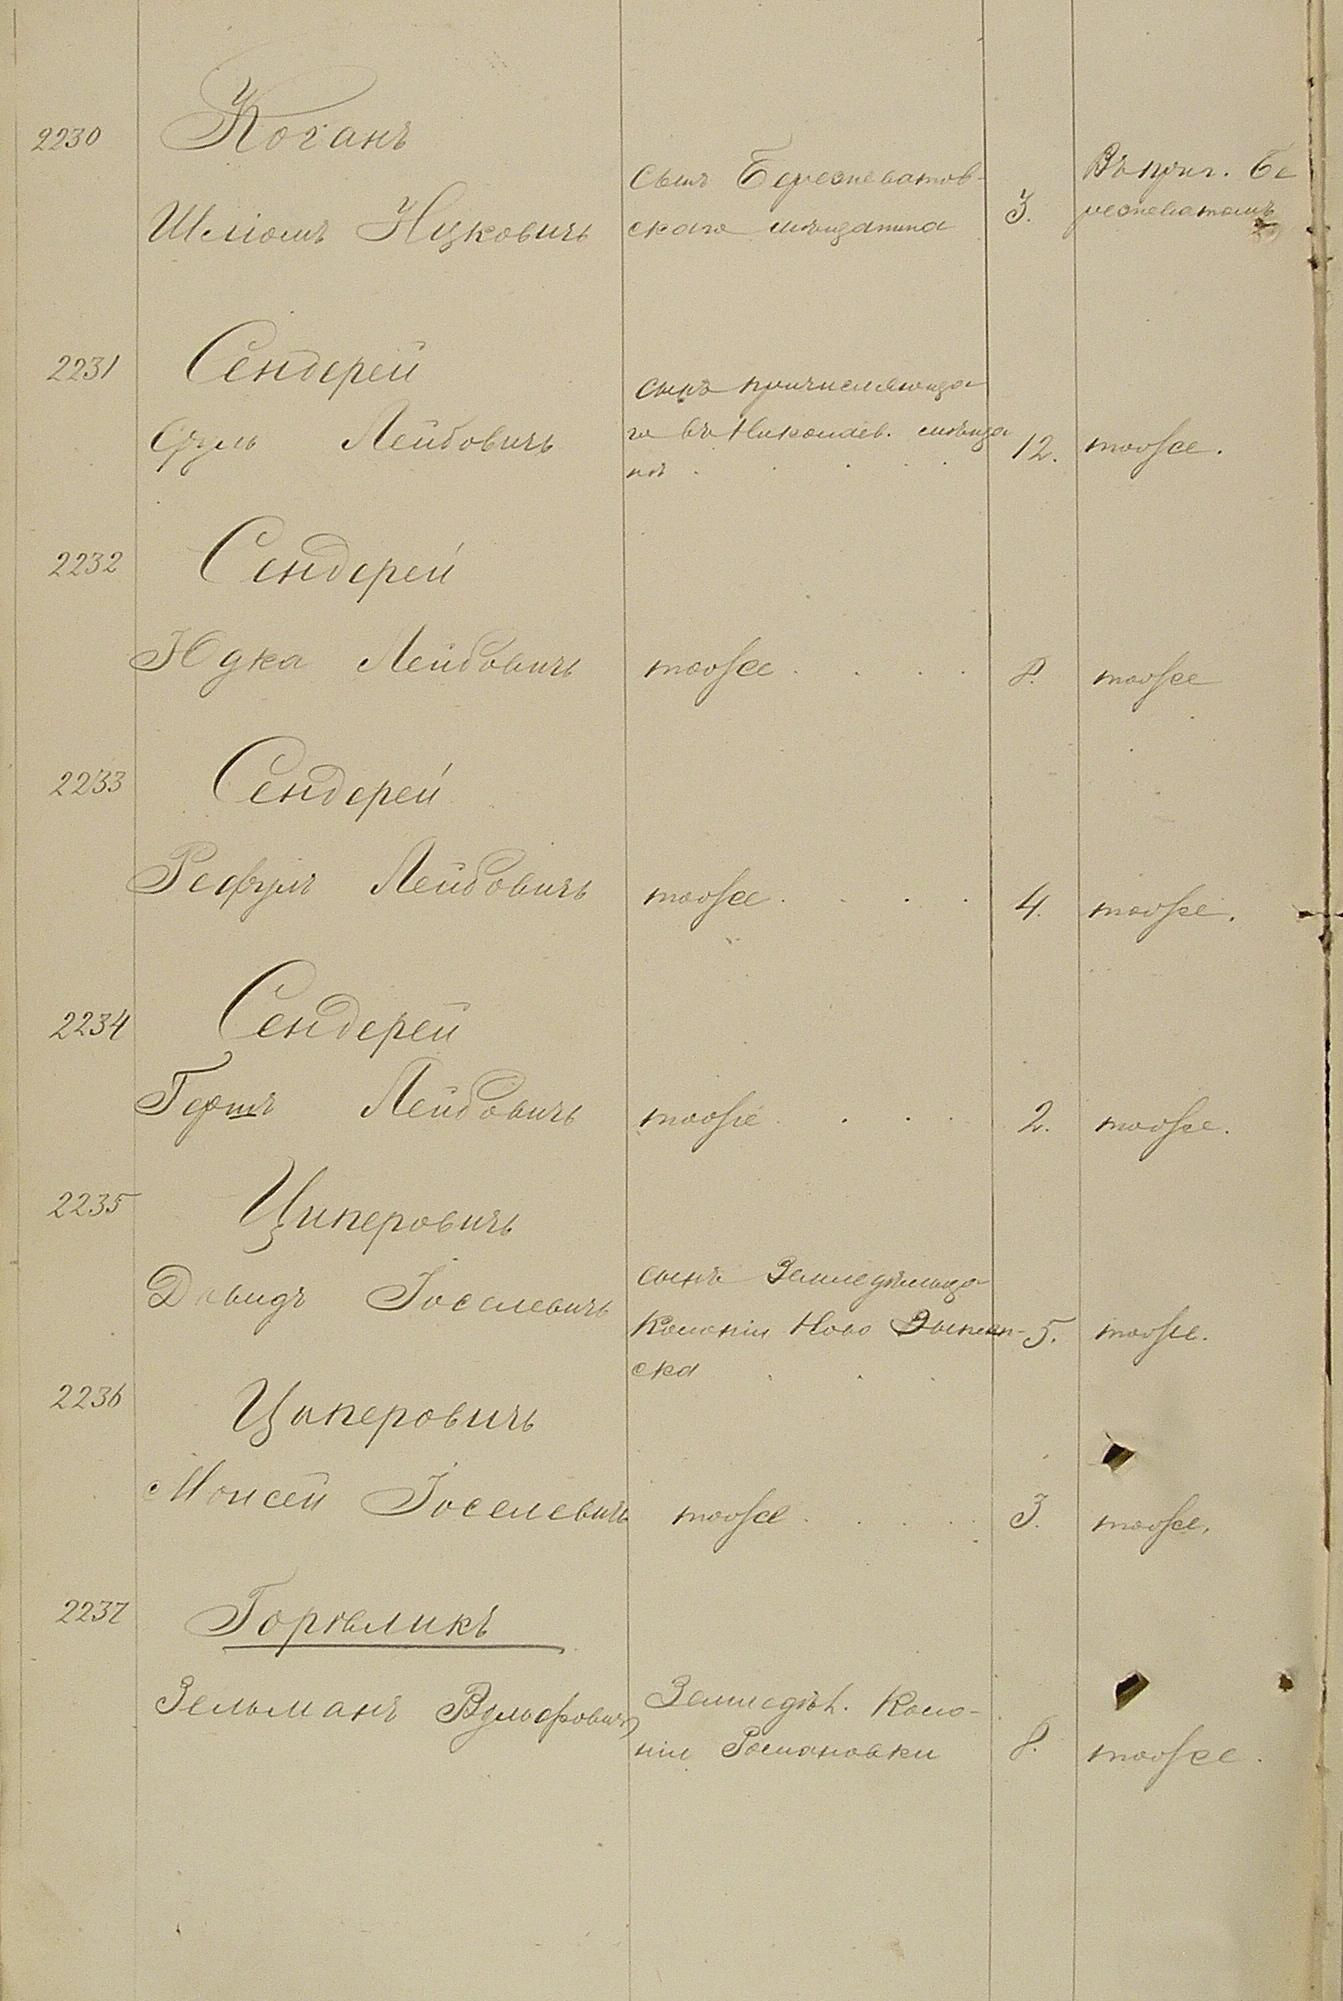 2230 Коганъ
Шліомъ Ицковичъ
сынъ Бересневатов-
скаго мѣщанина
3.
Въ приг. Бе
ресневатомъ
2231 Сендерей
Сруль Лейбовичъ
сынъ причисляюща-
го въ Николаев. мѣща
нѣ
12. тоже.
2232 Сендерей
Юдка Лейбовичъ тоже 8. тоже
2233 Сендерей
Рефулъ Лейбовичъ тоже 4. тоже.
2234 Сендерей
Гершъ Лейбовичъ тоже 2. тоже.
2235 Циперовичъ
Давидъ Іоселевичъ
сынъ Земледѣльца
Колоніи Ново
ска
5. тоже.
2236 Циперовичъ
Моисей Іоселевичъ тоже 3. тоже.
2237 Горѣликъ
Зельманъ Вульфовичъ
Земледѣл. Коло-
ніи Романовки
8. тоже.